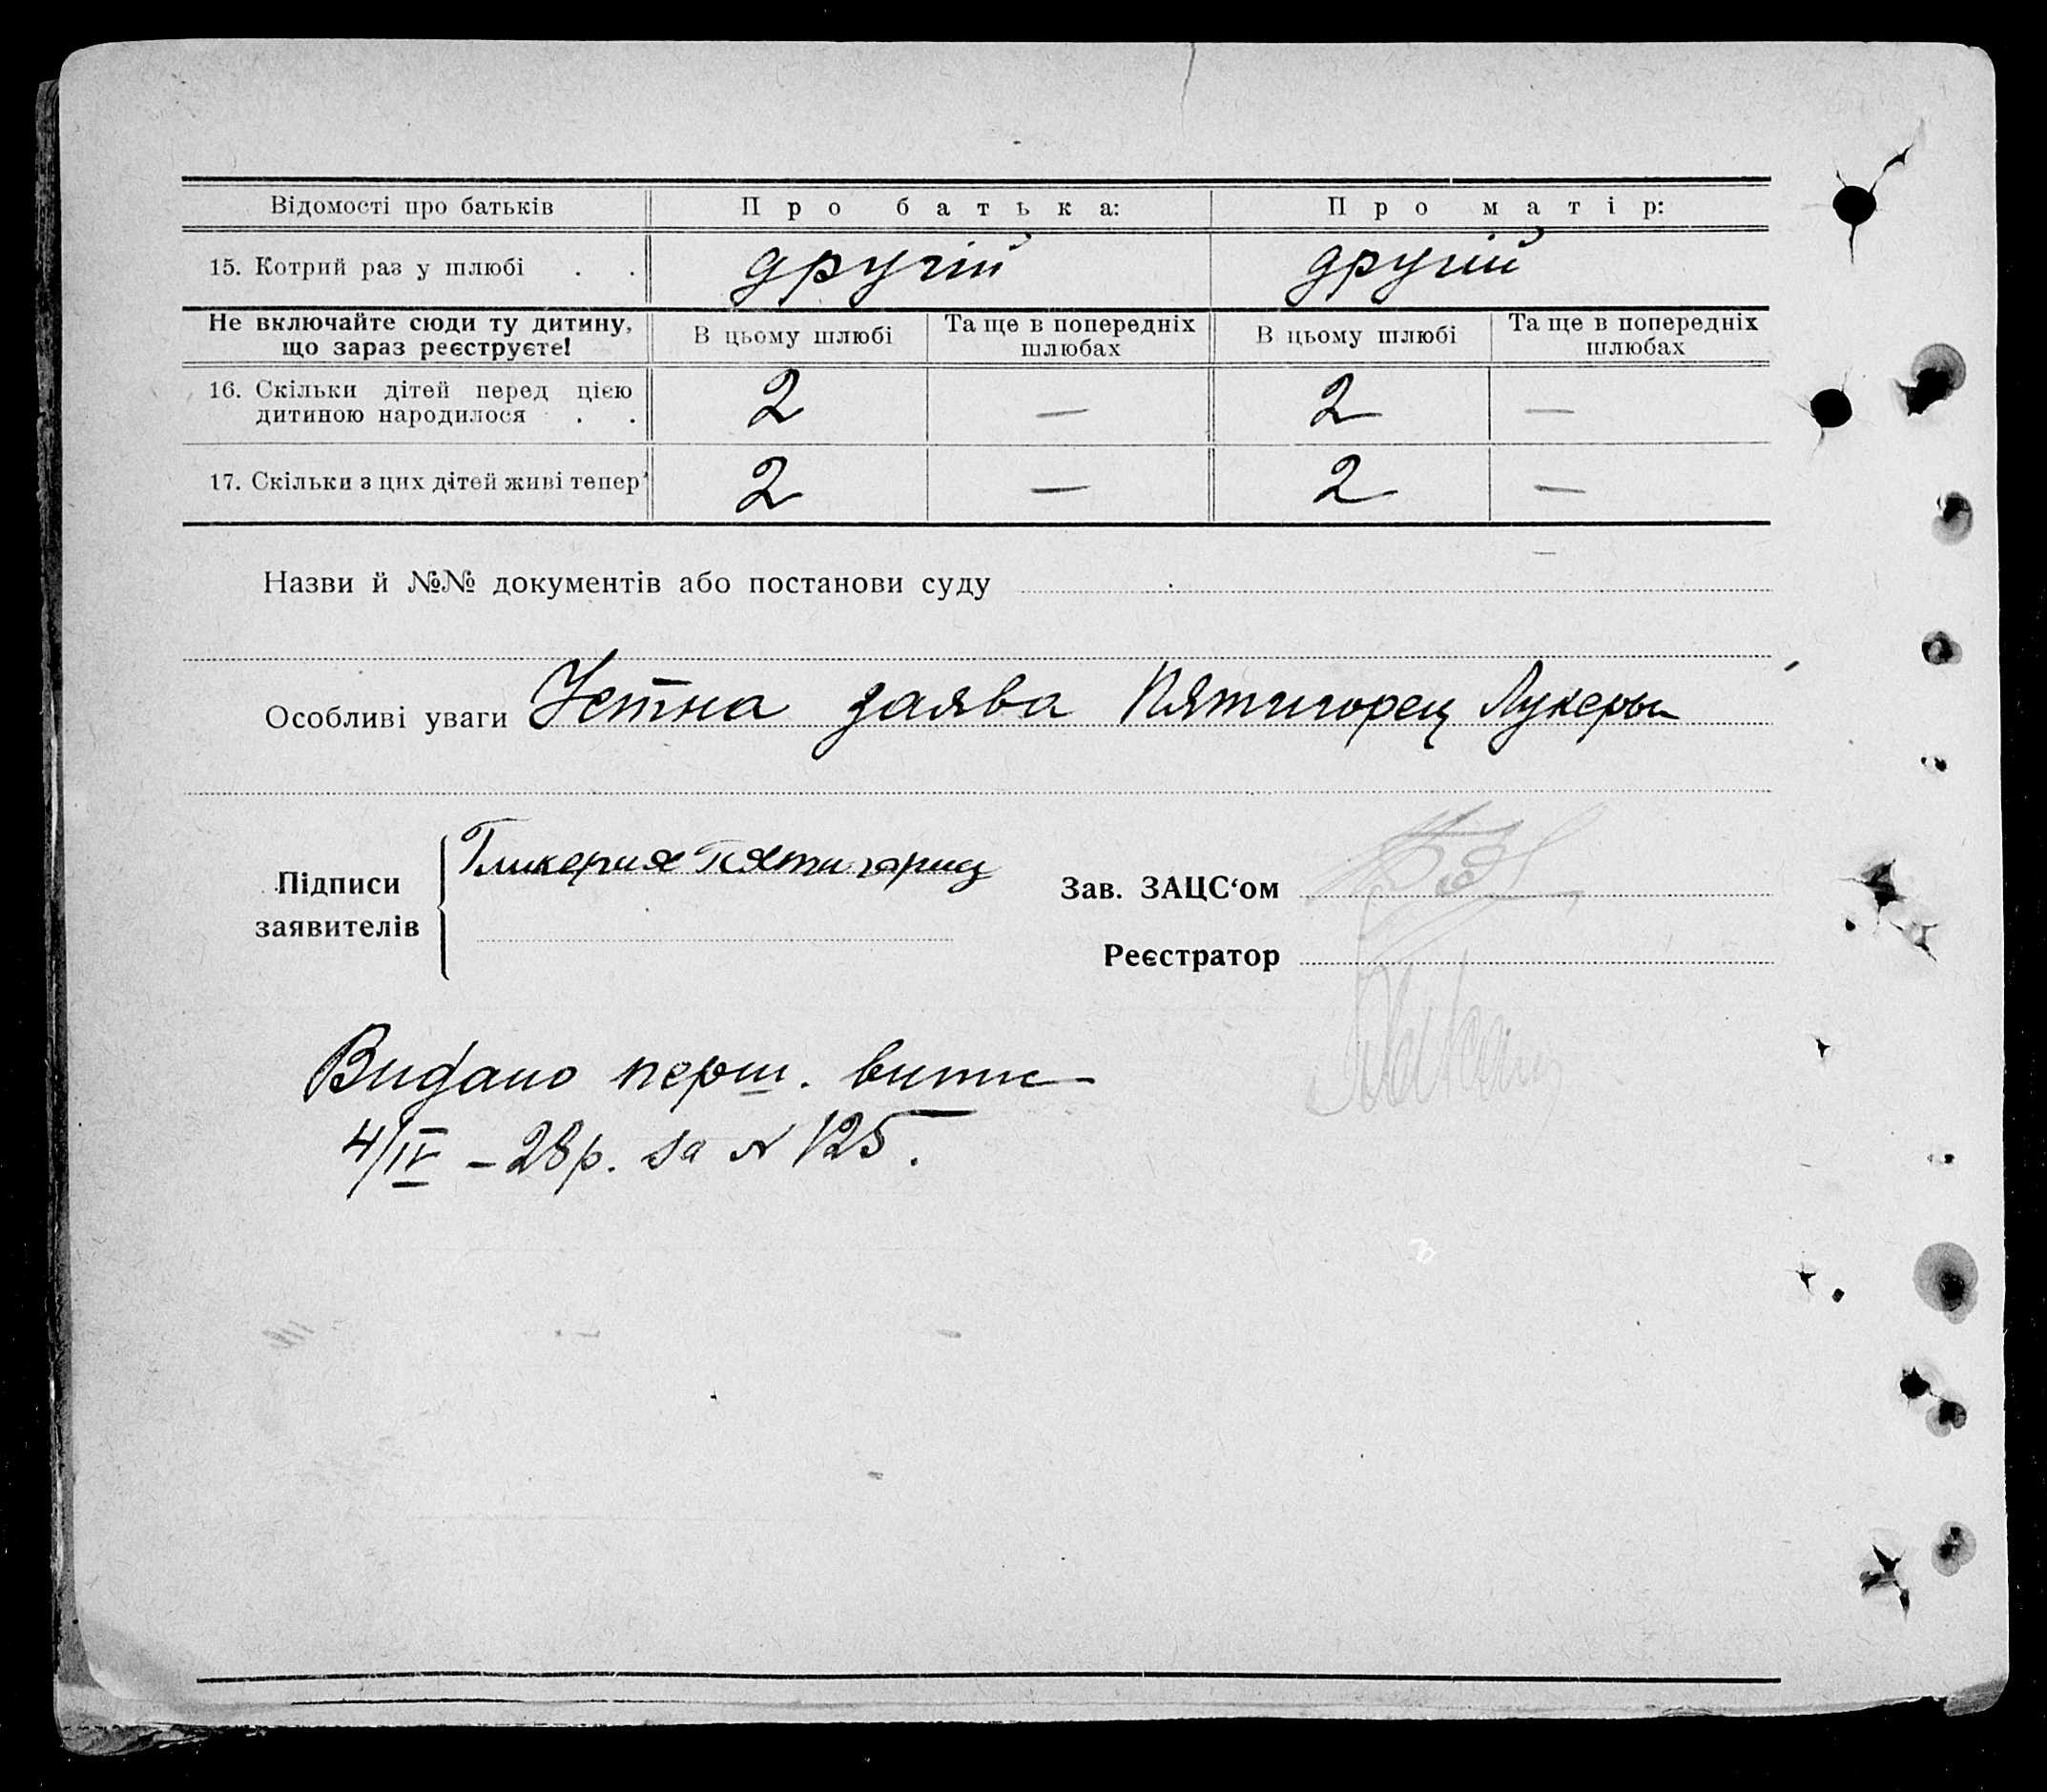 Відомості про батьків Про батька: Про матір:
15. Котрий раз у шлюбі . . другій другій
Не включайте сюди ту дитину, що зараз реєструєте! В цьому шлюбі Та ще в попередніх шлюбах В цьому шлюбі Та ще в попередніх шлюбах
16. Скільки дітей перед цією дитиною народилося . . 2 — 2 —
17. Скільки з цих дітей живі тепер 2 — 2 —
Назви й №№ документів або постанови суду —
Особливі уваги Устна заява Пятигорец Лукеры
Підписи заявителів Гликерия Пятигориц
Зав. ЗАЦС‘ом
Реєстратор
Видано перш. витис
4/IV – 28 р. за № 125.